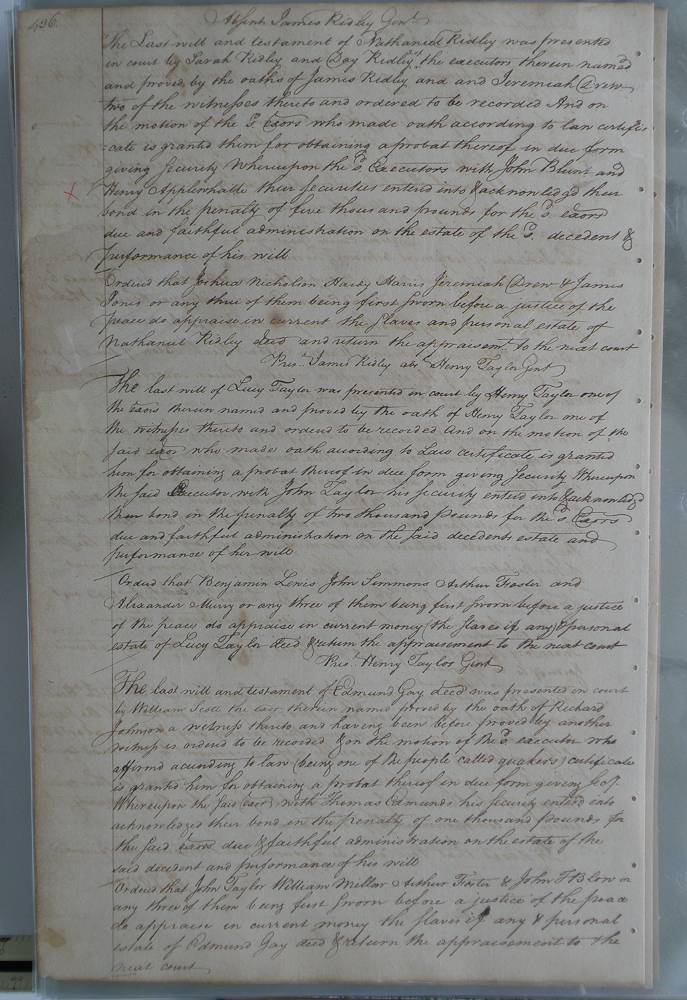 496.
Absent James Ridley Gent
The Last will and testament of Nathaniel Ridley was presented
in court by Sarah Ridley and Day Ridley the executors therein named
and proved by the oaths of James Ridley and and Jeremiah Drew
two of the witnesses thereto and ordered to be recorded And on
the motion of the sd. Exors who made oath according to law certifi
cate is granted them for obtaining a probat thereof in due form
giving security Whereupon the sd Executors with John Blunt and
Henry Applewhaite their securities entered into & acknowledged their
bond in the penalty of five thousand pounds for the sd. exors
due and faithful administration on the estate of the sd. decedent &
performance of his will
Ordered that Joshua Nicholson Hardy Harris Jeremiah Drew & James
Jones or any three of them being first sworn before a justice of the
peace do appraise in current the slaves and personal estate of
Nathaniel Ridley decd and return the appraisemt. to the next court
Prest. James Ridley abst Henry Taylor Gent
The last will of Lucy Taylor was presented in court by Henry Taylor one of
the exors therein named and proved by the oath of Henry Taylor one of
the witnesses thereto and ordered to be recorded And on the motion of the
said exor who made oath according to Law certificate is granted
him for obtaining a probat thereof in due form giving security Whereupon
the said Executor with John Taylor his security entered into & acknowledgd
their bond in the penalty of two thousand Pounds for the sd. Exors
due and faithful administration on the said decedents estate and
performance of her will
Ordered that Benjamin Lewis John Simmons Arthur Foster and
Alexander Murry or any three of them being first sworn before a justice
of the peace do appraise in current money the slaves if any & personal
estate of Lucy Taylor decd & return the appraisement to the next court
Prest. Henry Taylor Gent
The last will and testament of Edmund Gay decd was presented in court
by William Scott the exor therein named proved by the oath of Richard
Johnson a witness thereto and having been before proved by another
witness is ordered to be recorded & on the motion of the sd executor who
affirmd according to law (being one of the people called quakers) certificate
is granted him for obtaining a probat thereof in due form giving
Whereupon the said exor with Thomas Edmunds his security entered into
acknowledged their bond in the penalty of one thousand pounds for
the said exors due & faithful administration on the estate of the
said decedent and performance of his will
Ordered that John Taylor William Millar Arthur Foster & John T Blow or
any three of them being first sworn before a justice of the peace
do appraise in current money the slaves if any & personal
estate of Edmund Gay decd & return the appraisement to the
next court